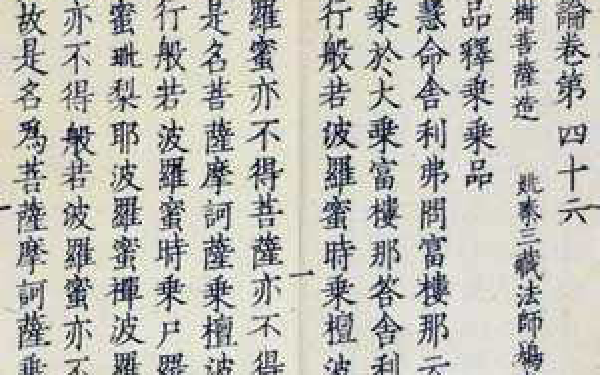 論卷第四十六
樹菩薩造 姚秦三藏法師鳩
品釋乘乘品
慧命舍利弗問富樓那云
乘於大乘富樓那答舍利
行般若波羅蜜時乘檀波
羅蜜亦不得菩薩亦不得
是名菩薩摩訶薩乘檀波
行般若波羅蜜時乘尸羅
蜜毗梨耶波羅蜜禪波羅
亦不得般若波羅蜜亦不
故是名為菩薩摩訶薩乘